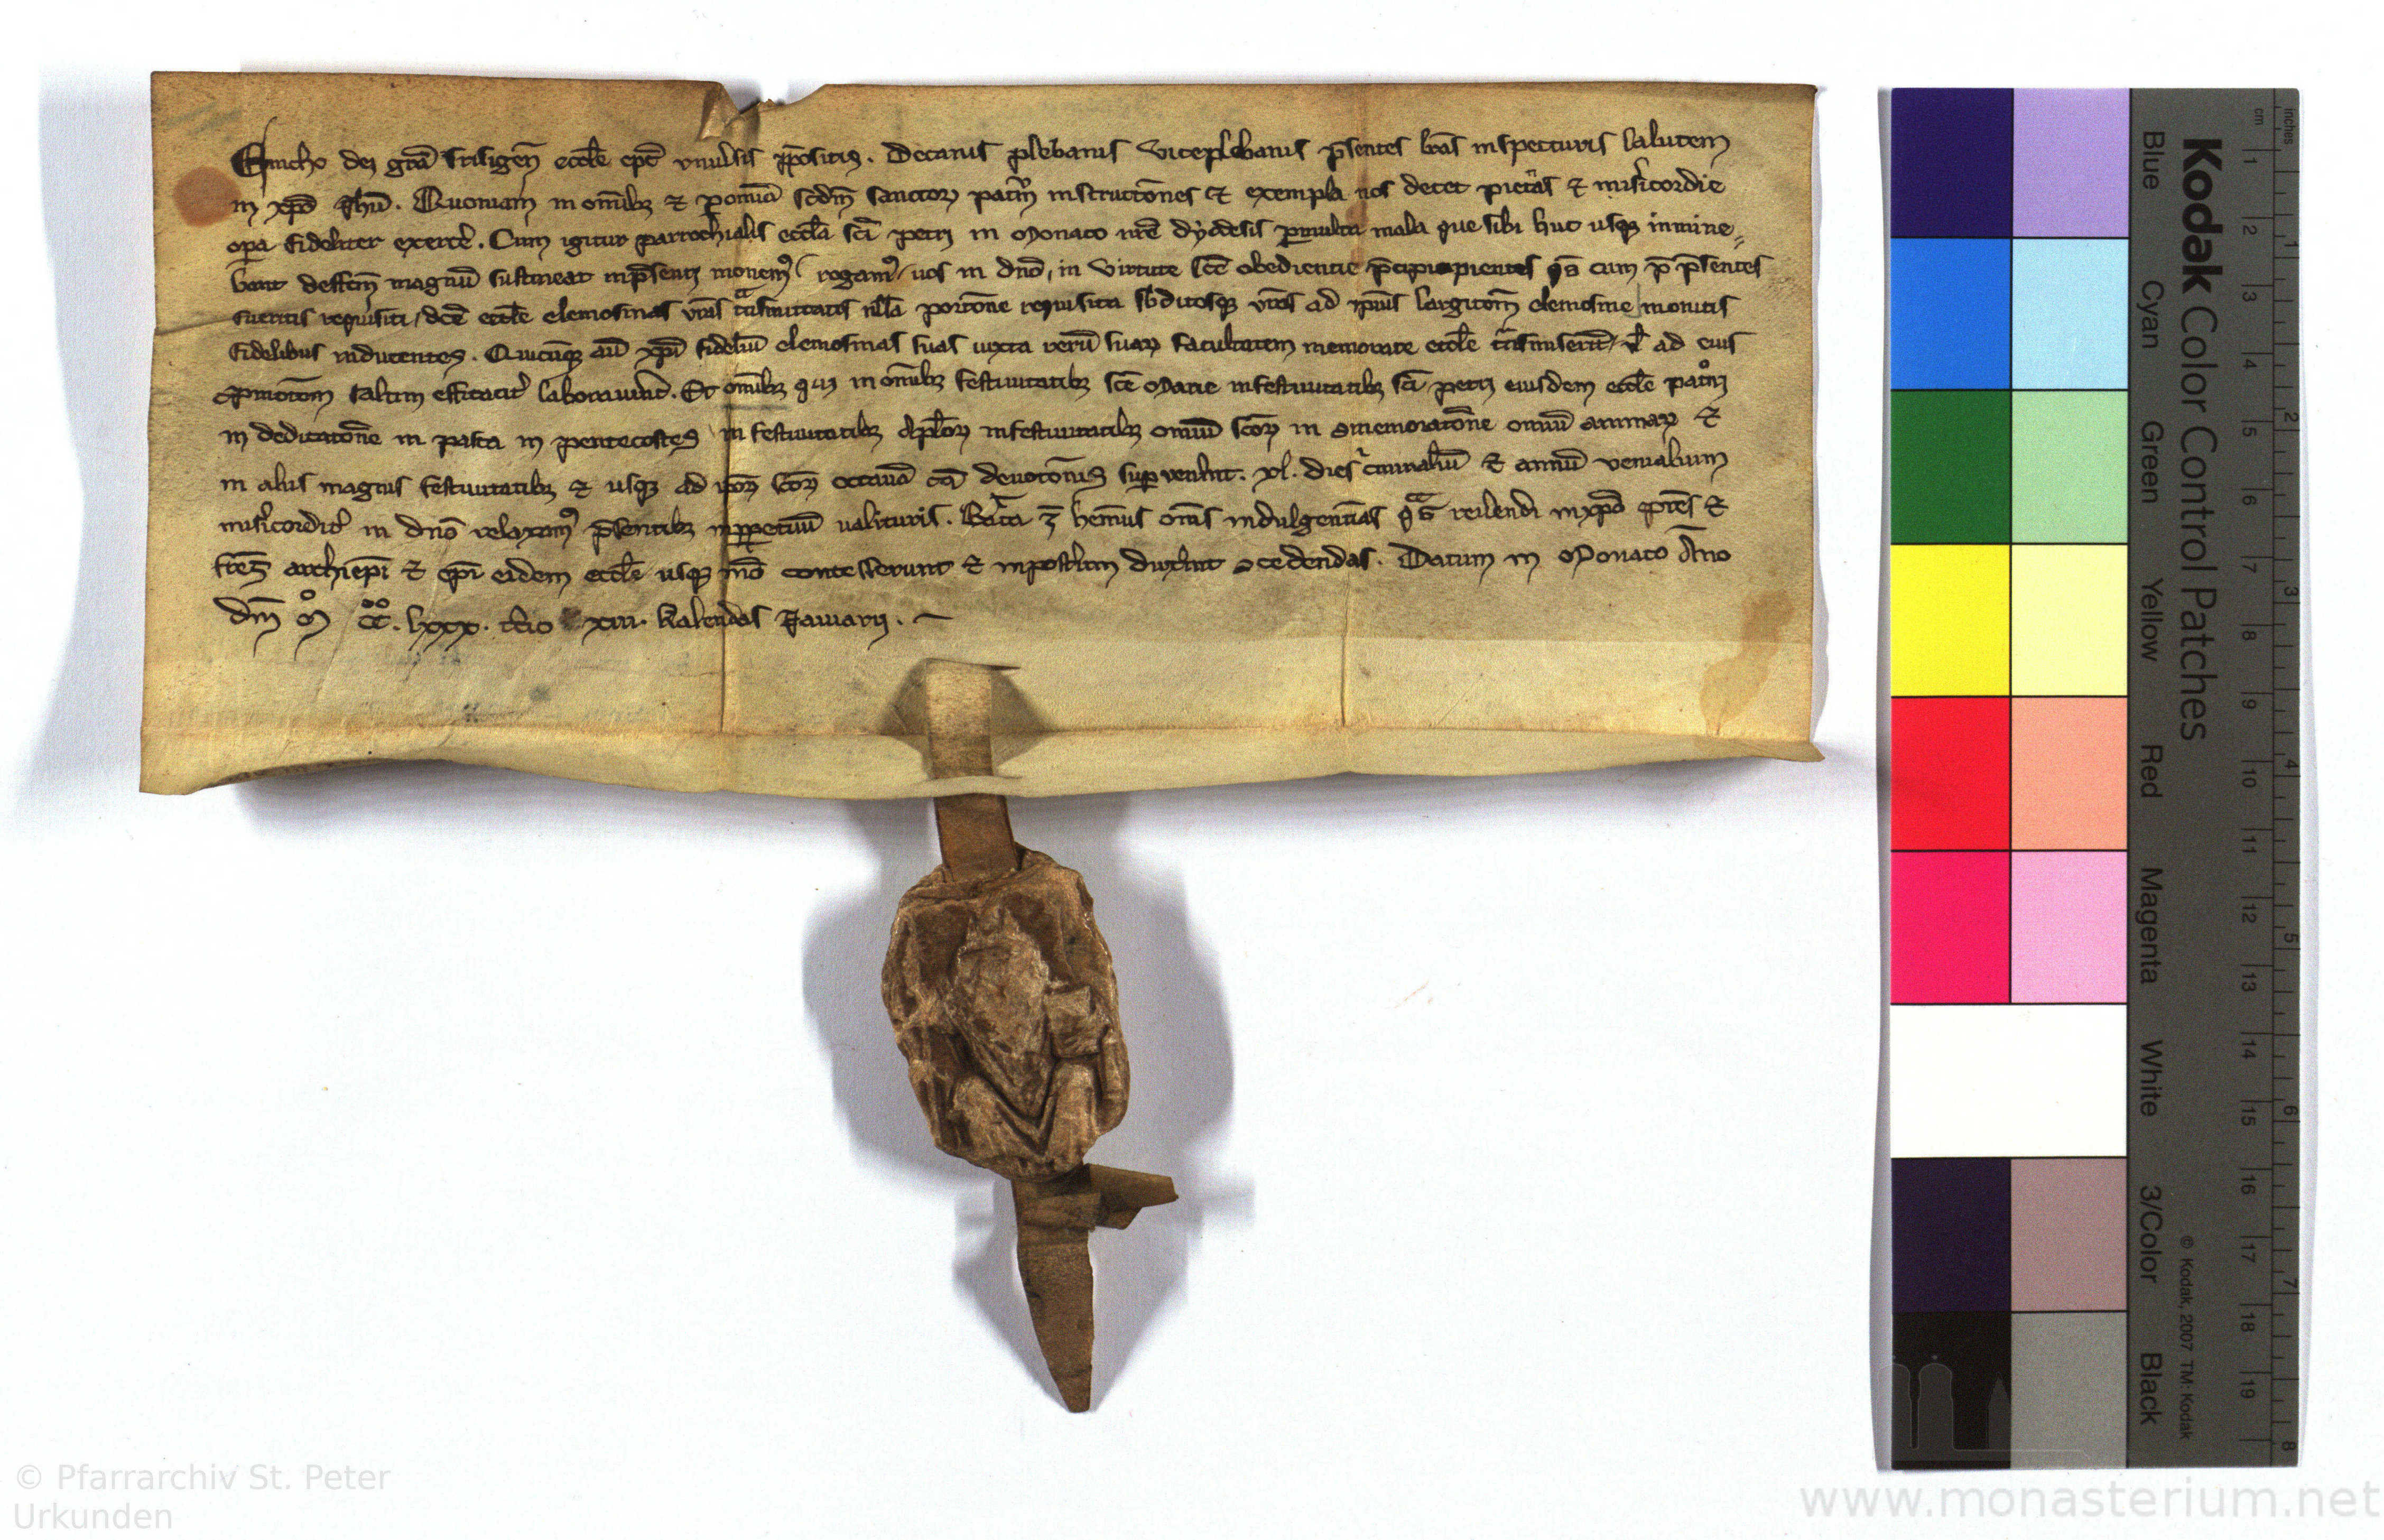 Emcho dei grã frisigeñ eccle epc vniusis ppositis. Decanis plebanis Viceplebanis psentes lras inspecturis salutem
in xpo ihu. Quoniam in omibz et p omia scdm sanctorz patrm instructones et exempla nos decet pietas et misicordie
opa fideliter exerce. Cum igitur parrochialis eccla sci petri in Monaco nre dyocesis pmulta mala que sibi huc usqz inmine-
bant deffem magnu sustineat in psenti monem rogam uos in dno, in virtute sce obedientie pcipi cum p psentes
fueritis requisiti, dce eccle elemosinas vras tasmittatis nlla portone requisita sbditosqz vros ad ipius largitom elemosine monitis
fidelibus inducentes. Quicuqz au xpi fideliu elemosinas suas iuxta reru suarz facultatem memorate eccle tasmiserit, vl ad eius
pmotom saltim efficacit laborauint. Et omibz qui in omibz festiuitatibz sce Marie in festiuitatibz sci petri eiusdem eccle patoni
in dedicatone in pasca in pentecostes in festiuitatibz Aplorz in festiuitatibz omiu scorz in 9memoratone omiu animarz et
in aliis magnis festiuitatibz et usqz ad ipor scorz octaua ca deuotonis supuenint. xl. dies ciminaliu et annu venialium
misicordit in dno relaxam psentibz in ppetuu ualituris. Rata et hemus omis indulgentias qs reuendi in xpo pres et
fres archiepi et epi eidem eccle usqz mo concesserunt et in posterum duxint 9cedendas. Datum in Monaco Ano
dni M CC. lxxx. tcio xiii. kalendas Januarij.
Kodak Color Control Patches
Blue Cyan Green Yellow Red Magenta White 3/Color Black
© Kodak, 2007 TM: Kodak
inches
cm
1 2 3 4 5 6 7 8 9 10 11 12 13 14 15 16 17 18 19
1 2 3 4 5 6 7 8
© Pfarrarchiv St. Peter
Urkunden
www.monasterium.net